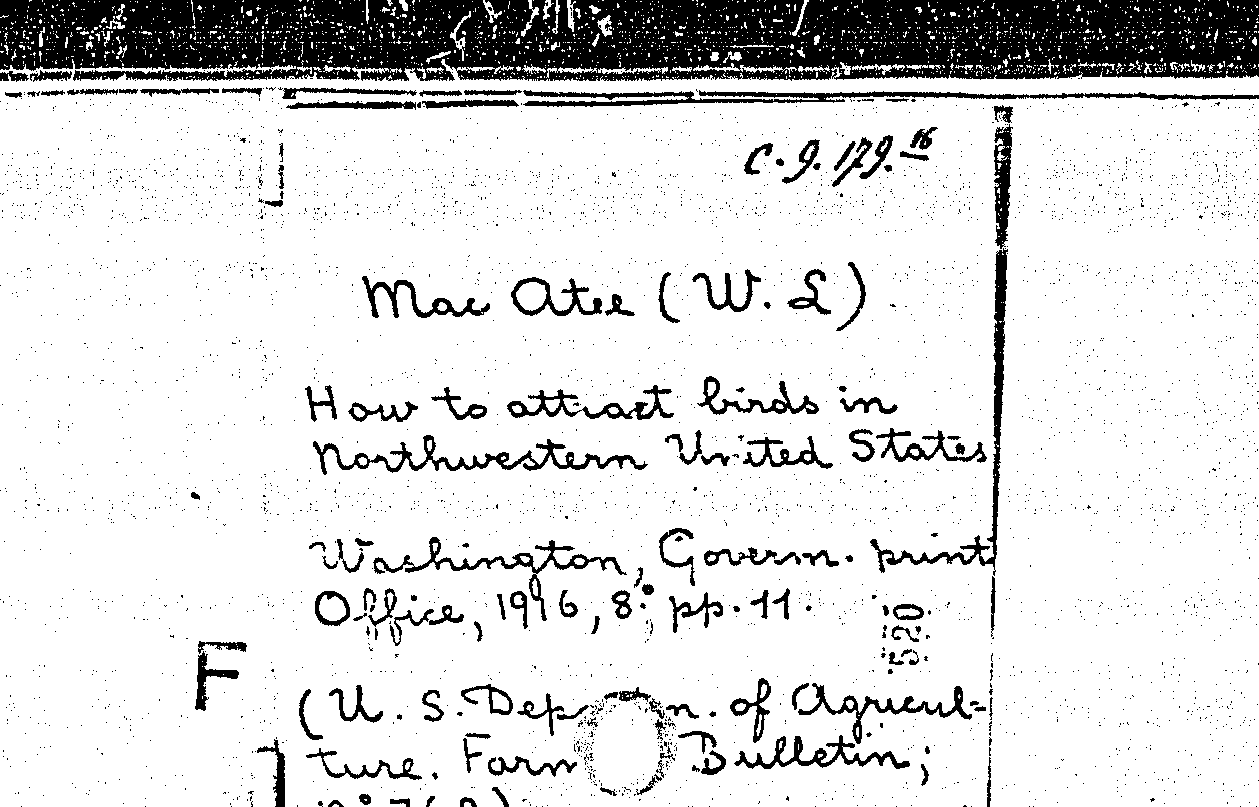 C.9.129.16
Mac Atee (W. L)
How to attract birds in
Northwestern United States
Washington, Govern. print.
Office, 1916, 8°, pp. 11.
520
F
(U. S. Dep n. of Agricul-
ture. Farm Bulletin;